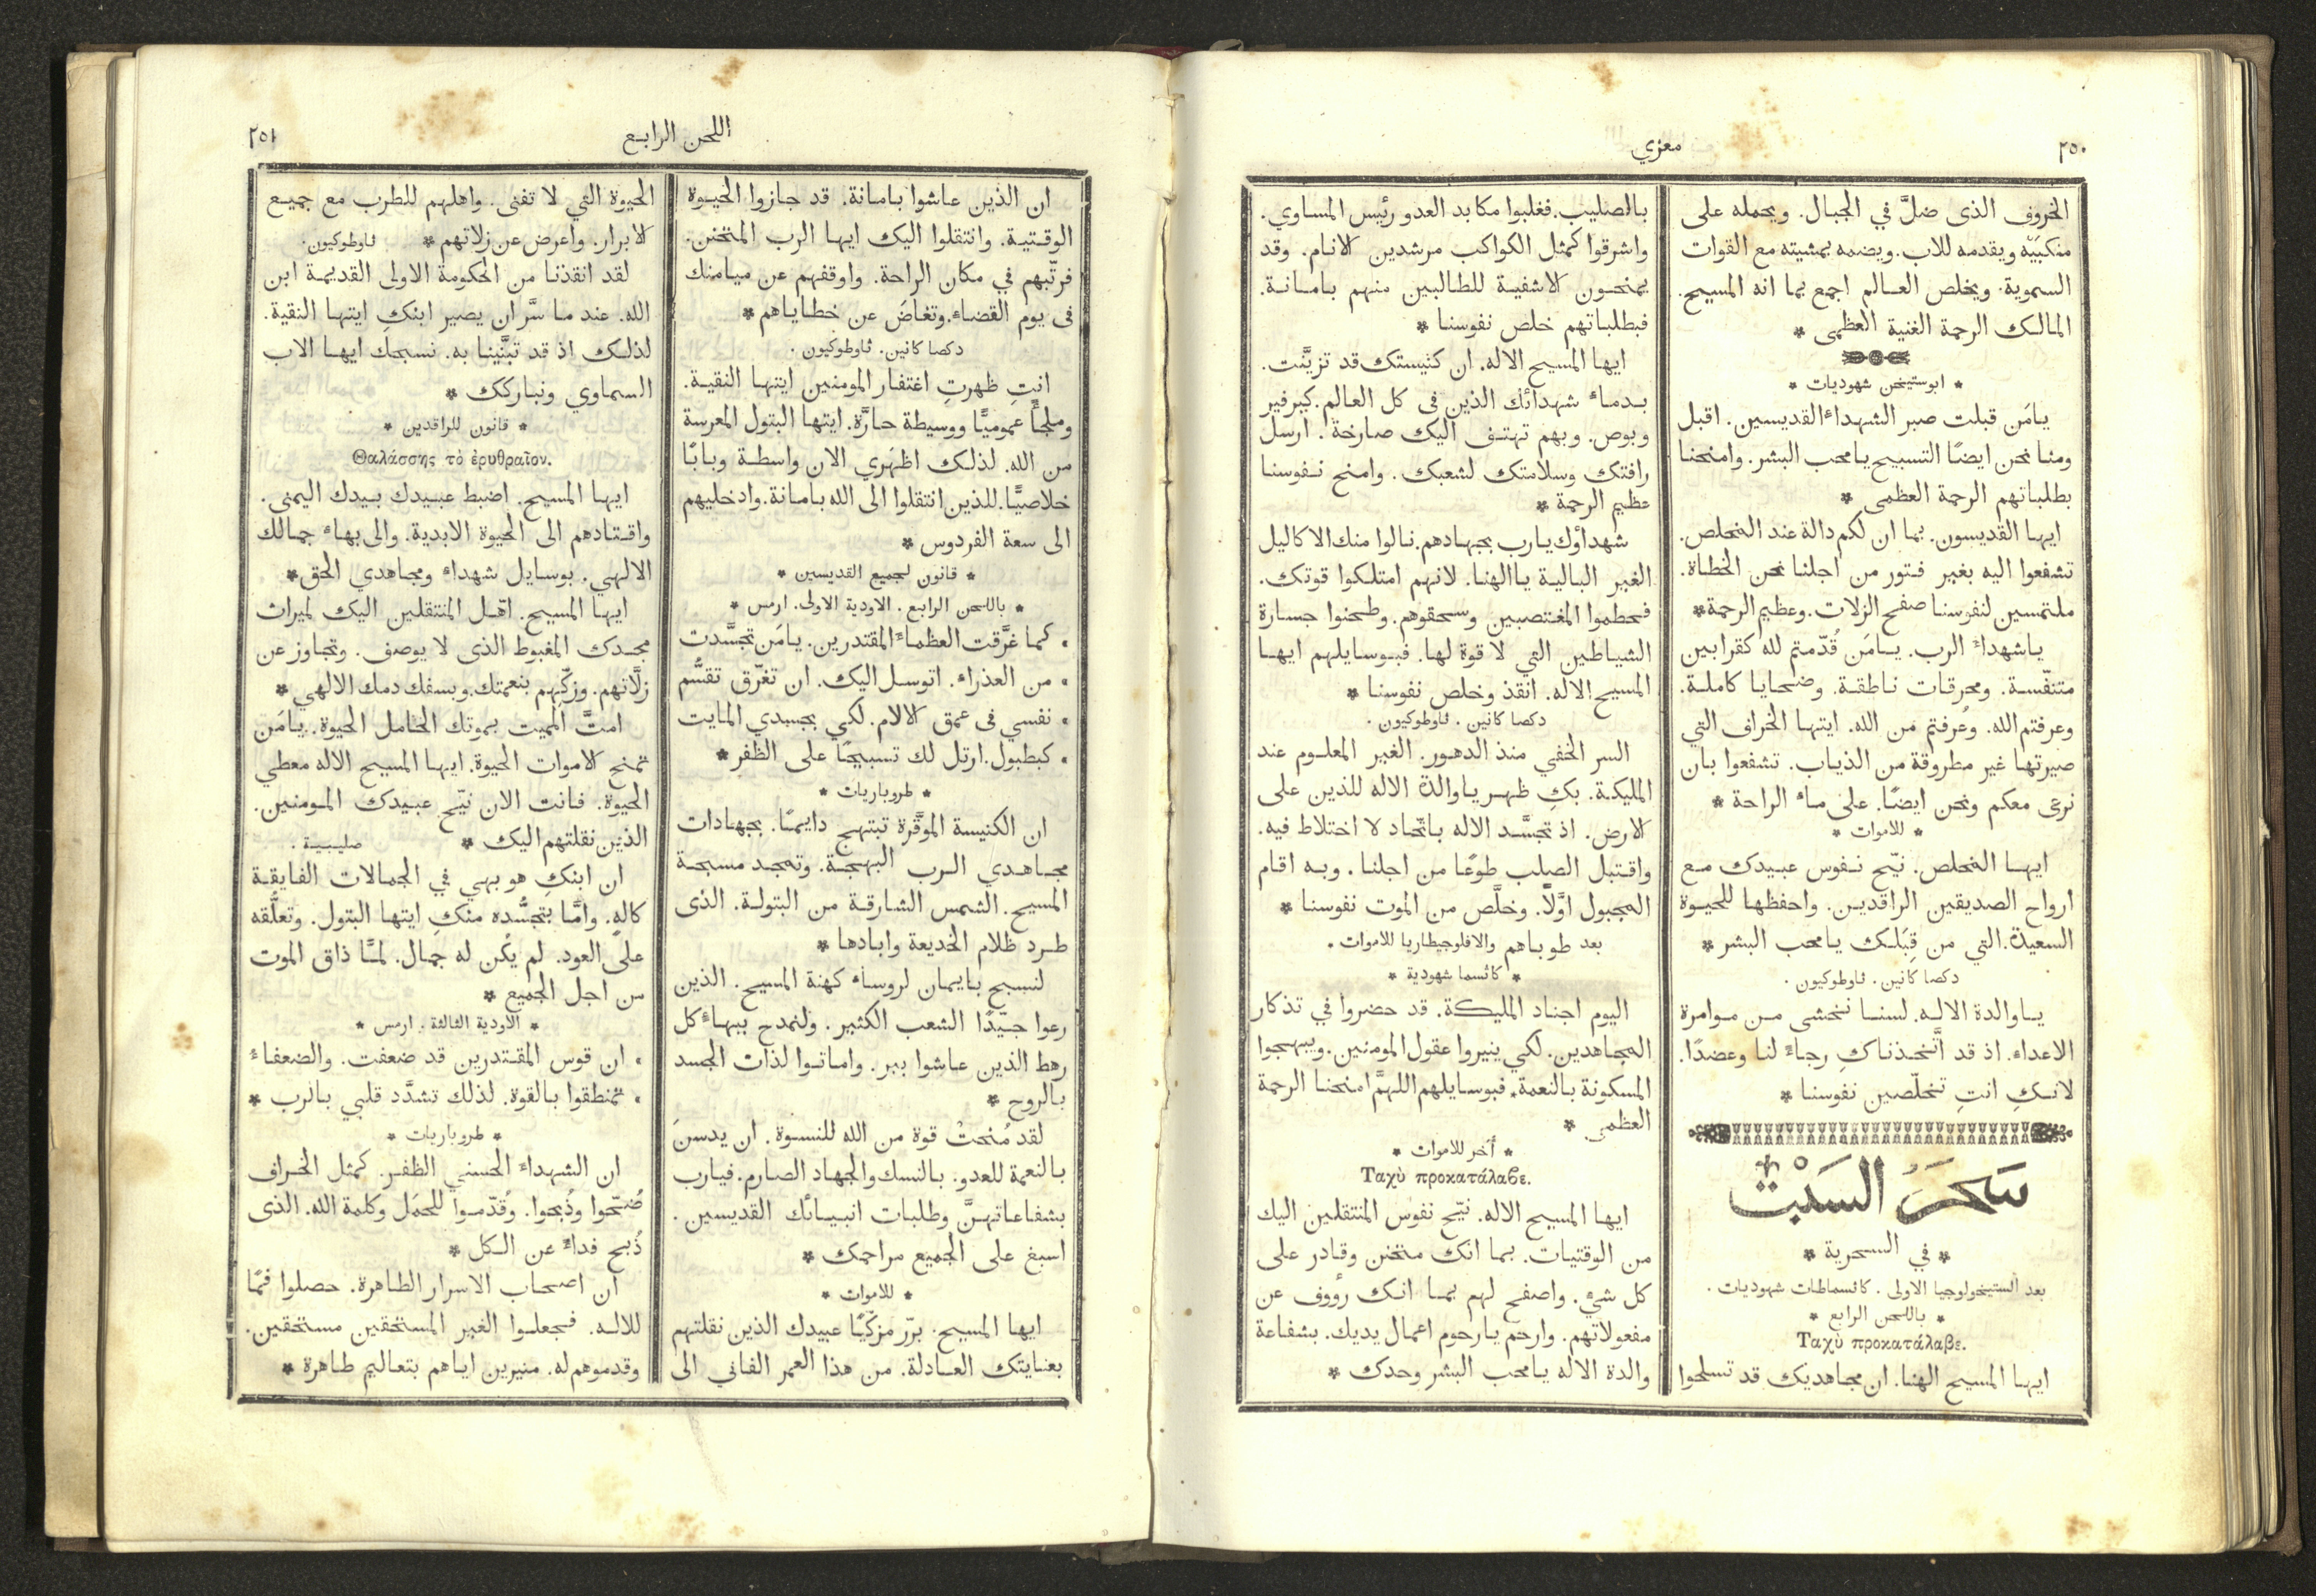 ٢٥٠
معزي
الخروف الذى ضلَّ في الجبال. ويحمله على
منكبَيْه ويقدمه للاب. ويضمه بمشيته مع القوات
السموية. ويخلص العالم اجمع بما انه المسيح.
المالك الرحمة الغنية العظمى *
* ابوستيخن شهوديات *
يامَن قبلت صبر الشهداء القديسين. اقبل
ومنا نحن ايضًا التسبيح يامحب البشر. وامنحنا
بطلباتهم الرحمة العظمى *
ايها القديسون. بما ان لكم دالة عند المخلص.
تشفعوا اليه بغير فتور من اجلنا نحن الخطاة.
ملتمسين لنفوسنا صفح الزلات. وعظيم الرحمة *
ياشهداء الرب. يامَن قُدّمتم لله كقرابين
متنفّسة. ومحرقات ناطقة. وضحايا كاملة.
وعرفتم الله. وعُرفتم من الله. ايتها الخراف التي
صيرتها غير مطروقة من الذياب. تشفعوا بان
نرعى معكم ونحن ايضًا. على ماء الراحة *
* للاموات *
ايها المخلص. نيّح نفوس عبيدك مع
ارواح الصديقين الراقدين. واحفظها للحيوة
السعيدة. التي من قِبَلك يامحب البشر *
دكصا كانين. ثاوطوكيون.
ياوالدة الاله. لسنا نخشى من موامرة
الاعداء. اذ قد اتَّخذناكِ رجاءً لنا وعضدًا.
لانكِ انتِ تخلّصين نفوسنا *
سَحَرَ السَبْت
* في السحرية *
بعد الستيخولوجيا الاولى. كاثسماطات شهوديات.
* باللحن الرابع *
Ταχὺ προκατάλαβε.
ايها المسيح الهنا. ان مجاهديك قد تسلحوا
بالصليب. فغلبوا مكابد العدو رئيس المساوي.
واشرقوا كمثل الكواكب مرشدين الانام. وقد
يمنحون الاشفية للطالبين منهم بامانة.
فبطلباتهم خلص نفوسنا *
ايها المسيح الاله. ان كنيستك قد تزيَّنت.
بدماء شهدائك الذين في كل العالم. كبرفير
وبوص. وبهم تهتف اليك صارخة. ارسل
رافتك وسلامتك لشعبك. وامنح نفوسنا
عظيم الرحمة *
شهداؤك يارب بجهادهم. نالوا منك الاكاليل
الغير البالية ياالهنا. لانهم امتلكوا قوتك.
فحطموا المغتصبين وسحقوهم. وطحنوا جسارة
الشياطين التي لا قوة لها. فبوسايلهم ايها
المسيح الاله. انقذ وخلص نفوسنا *
دكصا كانين. ثاوطوكيون.
السر الخفي منذ الدهور. الغير المعلوم عند
المليكة. بكِ ظهر ياوالدة الاله للذين على
الارض. اذ تجسَّد الاله باتّحاد لا اختلاط فيه.
واقتبل الصلب طوعًا من اجلنا. وبه اقام
المجبول اوَّلًا. وخلَّص من الموت نفوسنا *
بعد طوباهم والافلوجيطاريا للاموات.
* كاثسما شهودية *
اليوم اجناد المليكة. قد حضروا في تذكار
المجاهدين. لكي ينيروا عقول المومنين. ويبهجوا
المسكونة بالنعمة. فبوسايلهم اللهمَّ امنحنا الرحمة
العظمى *
* آخر للاموات *
Ταχὺ προκατάλαβε.
ايها المسيح الاله. نيّح نفوس المنتقلين اليك
من الوقتيات. بما انك متحنن وقادر على
كل شيء. واصفح لهم بما انك رؤوف عن
مفعولاتهم. وارحم يارحوم اعمال يديك. بشفاعة
والدة الاله يامحب البشر وحدك *
اللحن الرابع
٢٥١
ان الذين عاشوا بامانة. قد جازوا الحيوة
الوقتية. وانتقلوا اليك ايها الرب المتحنن.
فرتّبهم في مكان الراحة. واوقفهم عن ميامنك
في يوم القضاء. وتغاضَ عن خطاياهم *
دكصا كانين. ثاوطوكيون.
انتِ ظهرتِ اغتفار المومنين ايتها النقية.
وملجأً عموميًّا ووسيطة حارَّة. ايتها البتول المعرسة
من الله. لذلك اظهري الان واسطة وبابًا
خلاصيًّا. للذين انتقلوا الى الله بامانة. وادخليهم
الى سعة الفردوس *
* قانون لجميع القديسين *
* باللحن الرابع. الاودية الاولى. ارمس *
• كما غرَّقت العظماء المقتدرين. يامَن تجسَّدت
• من العذراء. اتوسل اليك. ان تغرّق تقسُّم
• نفسي في عمق الالام. لكي بجسدي المايت
• كبطبول. ارتل لك تسبيحًا على الظفر *
* طروباريات *
ان الكنيسة الموقَّرة تبتهج دايمًا. بجهادات
مجاهدي الرب البهجة. وتمجد مسبحة
المسيح. الشمس الشارقة من البتولة. الذى
طرد ظلام الخديعة وابادها *
لنسبح بايمان لروساء كهنة المسيح. الذين
رعوا جيّدًا الشعب الكثير. ولنمدح ببهاء كل
رهط الذين عاشوا ببر. واماتوا لذات الجسد
بالروح *
لقد مُنحتْ قوة من الله للنسوة. ان يدسنَ
بالنعمة للعدو. بالنسك والجهاد الصارم. فيارب
بشفاعاتهنَّ وطلبات انبيائك القديسين.
اسبغ على الجميع مراحمك *
* للاموات *
ايها المسيح. برّر مزكّيًا عبيدك الذين نقلتهم
بعنايتك العادلة. من هذا العمر الفاني الى
الحيوة التي لا تفنى. واهلهم للطرب مع جميع
الابرار. واعرض عن زلاتهم * ثاوطوكيون.
لقد انقذنا من الحكومة الاولى القديمة ابن
الله. عند ما سرَّ ان يصير ابنكِ ايتها النقية.
لذلك اذ قد تبنَّينا به. نسبحك ايها الاب
السماوي ونباركك *
* قانون للراقدين *
Θαλάσσης τὸ ἐρυθραῖον.
ايها المسيح. اضبط عبيدك بيدك اليمنى.
واقتادهم الى الحيوة الابدية. والى بهاء جمالك
الالهي. بوسايل شهداء ومجاهدي الحق *
ايها المسيح. اهّل المنتقلين اليك لميراث
مجدك المغبوط الذى لا يوصف. وتجاوز عن
زلَّاتهم. وزكّهم بنعمتك. وبسفك دمك الالهي *
امتَّ المميت بموتك الحامل الحيوة. يامَن
تمنح الاموات الحيوة. ايها المسيح الاله معطي
الحيوة. فانت الان نيّح عبيدك المومنين.
الذين نقلتهم اليك * صليبية.
ان ابنكِ هو بهي في الجمالات الفايقة
كالهٍ. وامَّا بتجسُّده منكِ ايتها البتول. وتعلُّقه
على العود. لم يكن له جمال. لمَّا ذاق الموت
من اجل الجميع *
* الاودية الثالثة. ارمس *
• ان قوس المقتدرين قد ضعفت. والضعفاء
• تمنطقوا بالقوة. لذلك تشدَّد قلبي بالرب *
* طروباريات *
ان الشهداء الحسني الظفر. كمثل الخراف
ضُحّوا وذُبحوا. وقُدّموا للحمَل وكلمة الله. الذى
ذُبح فداءً عن الكل *
ان اصحاب الاسرار الطاهرة. حصلوا فمًا
للاله. فجعلوا الغير المستحقين مستحقين.
وقدموهم له. منيرين اياهم بتعاليم طاهرة *